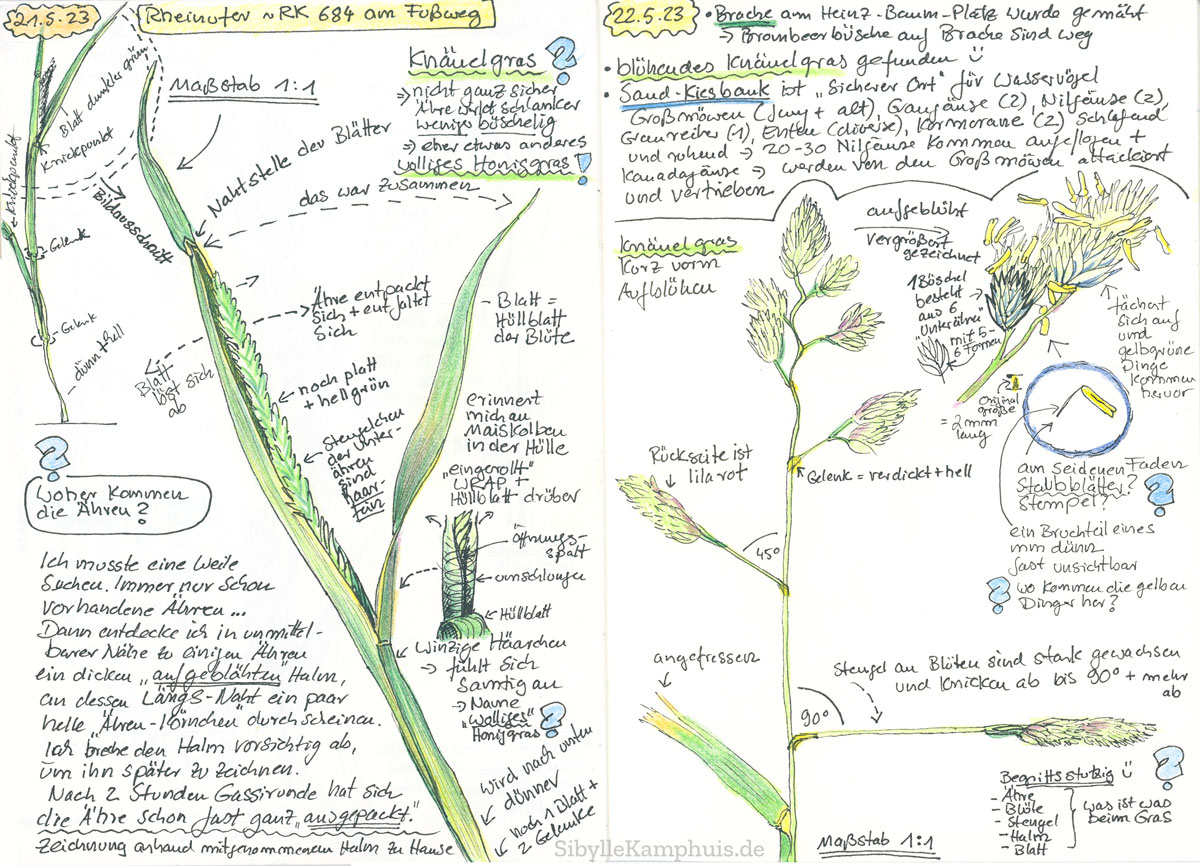 21.5.23
Rheinufer ~RK 684 am Fußweg
Blatt dunkler grün
Knickpunkt
Knickpunkt
Gelenk
Gelenk
dünn + hell
Bildausschnitt
Maßstab 1:1
Nahtstelle der Blätter
das war zusammen
Knäuelgras ?
→ nicht ganz sicher
Ähre wirkt schlanker
wenig büschelig
⇒ eher etwas anderes
wolliges Honiggras!
Ähre entpackt
sich + entfaltet
sich
Blatt
löst sich
ab
noch platt
+ hellgrün
Stengelchen
der Unter-
ähren
sind
haar-
fein
- Blatt =
Hüllblatt
der Blüte
erinnert
mich an
Maiskolben
in der Hülle
"eingerollt"
WRAP +
Hüllblatt drüber
Öffnungs-
spalt
umschlungen
Hüllblatt
winzige Häarchen
→ fühlt sich
samtig an
→ Name
"Wolliges"
Honiggras ?
wird nach unten
dünner
noch 1 Blatt +
2 Gelenke
?
Woher kommen
die Ähren?
Ich musste eine Weile
suchen. Immer nur schon
vorhandene Ähren...
Dann entdecke ich in unmittel-
barer Nähe zu einigen Ähren
ein dicken „aufgeblähten" Halm,
an dessen Längs-Naht ein paar
helle "Ähren-Körnchen durchscheinen.
Ich breche den Halm vorsichtig ab,
um ihn später zu zeichnen.
Nach 2 Stunden Gassirunde hat sich
die Ähre schon fast ganz „ausgepackt."
Zeichnung anhand mitgenommenem Halm zu Hause
22.5.23
• Brache am Heinz-Baum-Platz wurde gemäht
→ Brombeerbüsche auf Brache sind weg
• blühendes Knäuelgras gefunden
• Sand-Kiesbank ist "sicherer Ort" für Wasservögel
Großmöwen (jung + alt), Graugänse (2), Nilgänse (2),
Graureiher (1), Enten (diverse), Kormorane (2) schlafend
und ruhend → 20-30 Nilgänse kommen angeflogen +
Kanadagänse → werden von den Großmöwen attackiert
und vertrieben
Knäuelgras
kurz vorm
Aufblühen
aufgeblüht
vergrößert
gezeichnet
1 Büschel
besteht
aus 6
Unterähren
mit 5-
6 Formen
fächert
sich auf
und
gelbgrüne
Dinge
kommen
hervor
Original
größe
= 2mm
lang
Rückseite ist
lilarot
Gelenk = verdickt + hell
45°
am seidenen Faden
Staubblätter?
Stempel? ?
ein Bruchteil eines
mm dünn
fast unsichtbar
? wo kommen die gelben
Dinger her?
angefressen
Stengel an Blüten sind stark gewachsen
und knicken ab bis 90° + mehr
ab
90°
?
Begriffsstutzig
- Ähre
- Blüte
- Stengel
- Halm
- Blatt
was ist was
beim Gras
Maßstab 1:1
SibylleKamphuis.de